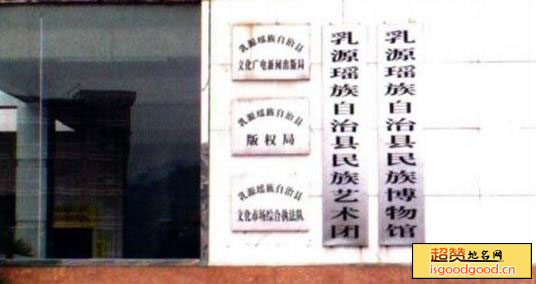 乳源瑶族自治县
文化广电新闻出版局
乳源瑶族自治县
版权局
乳源瑶族自治县
文化市场综合执法队
乳源瑶族自治县民族艺术团
乳源瑶族自治县民族博物馆
超赞地名网
isgoodgood.cn